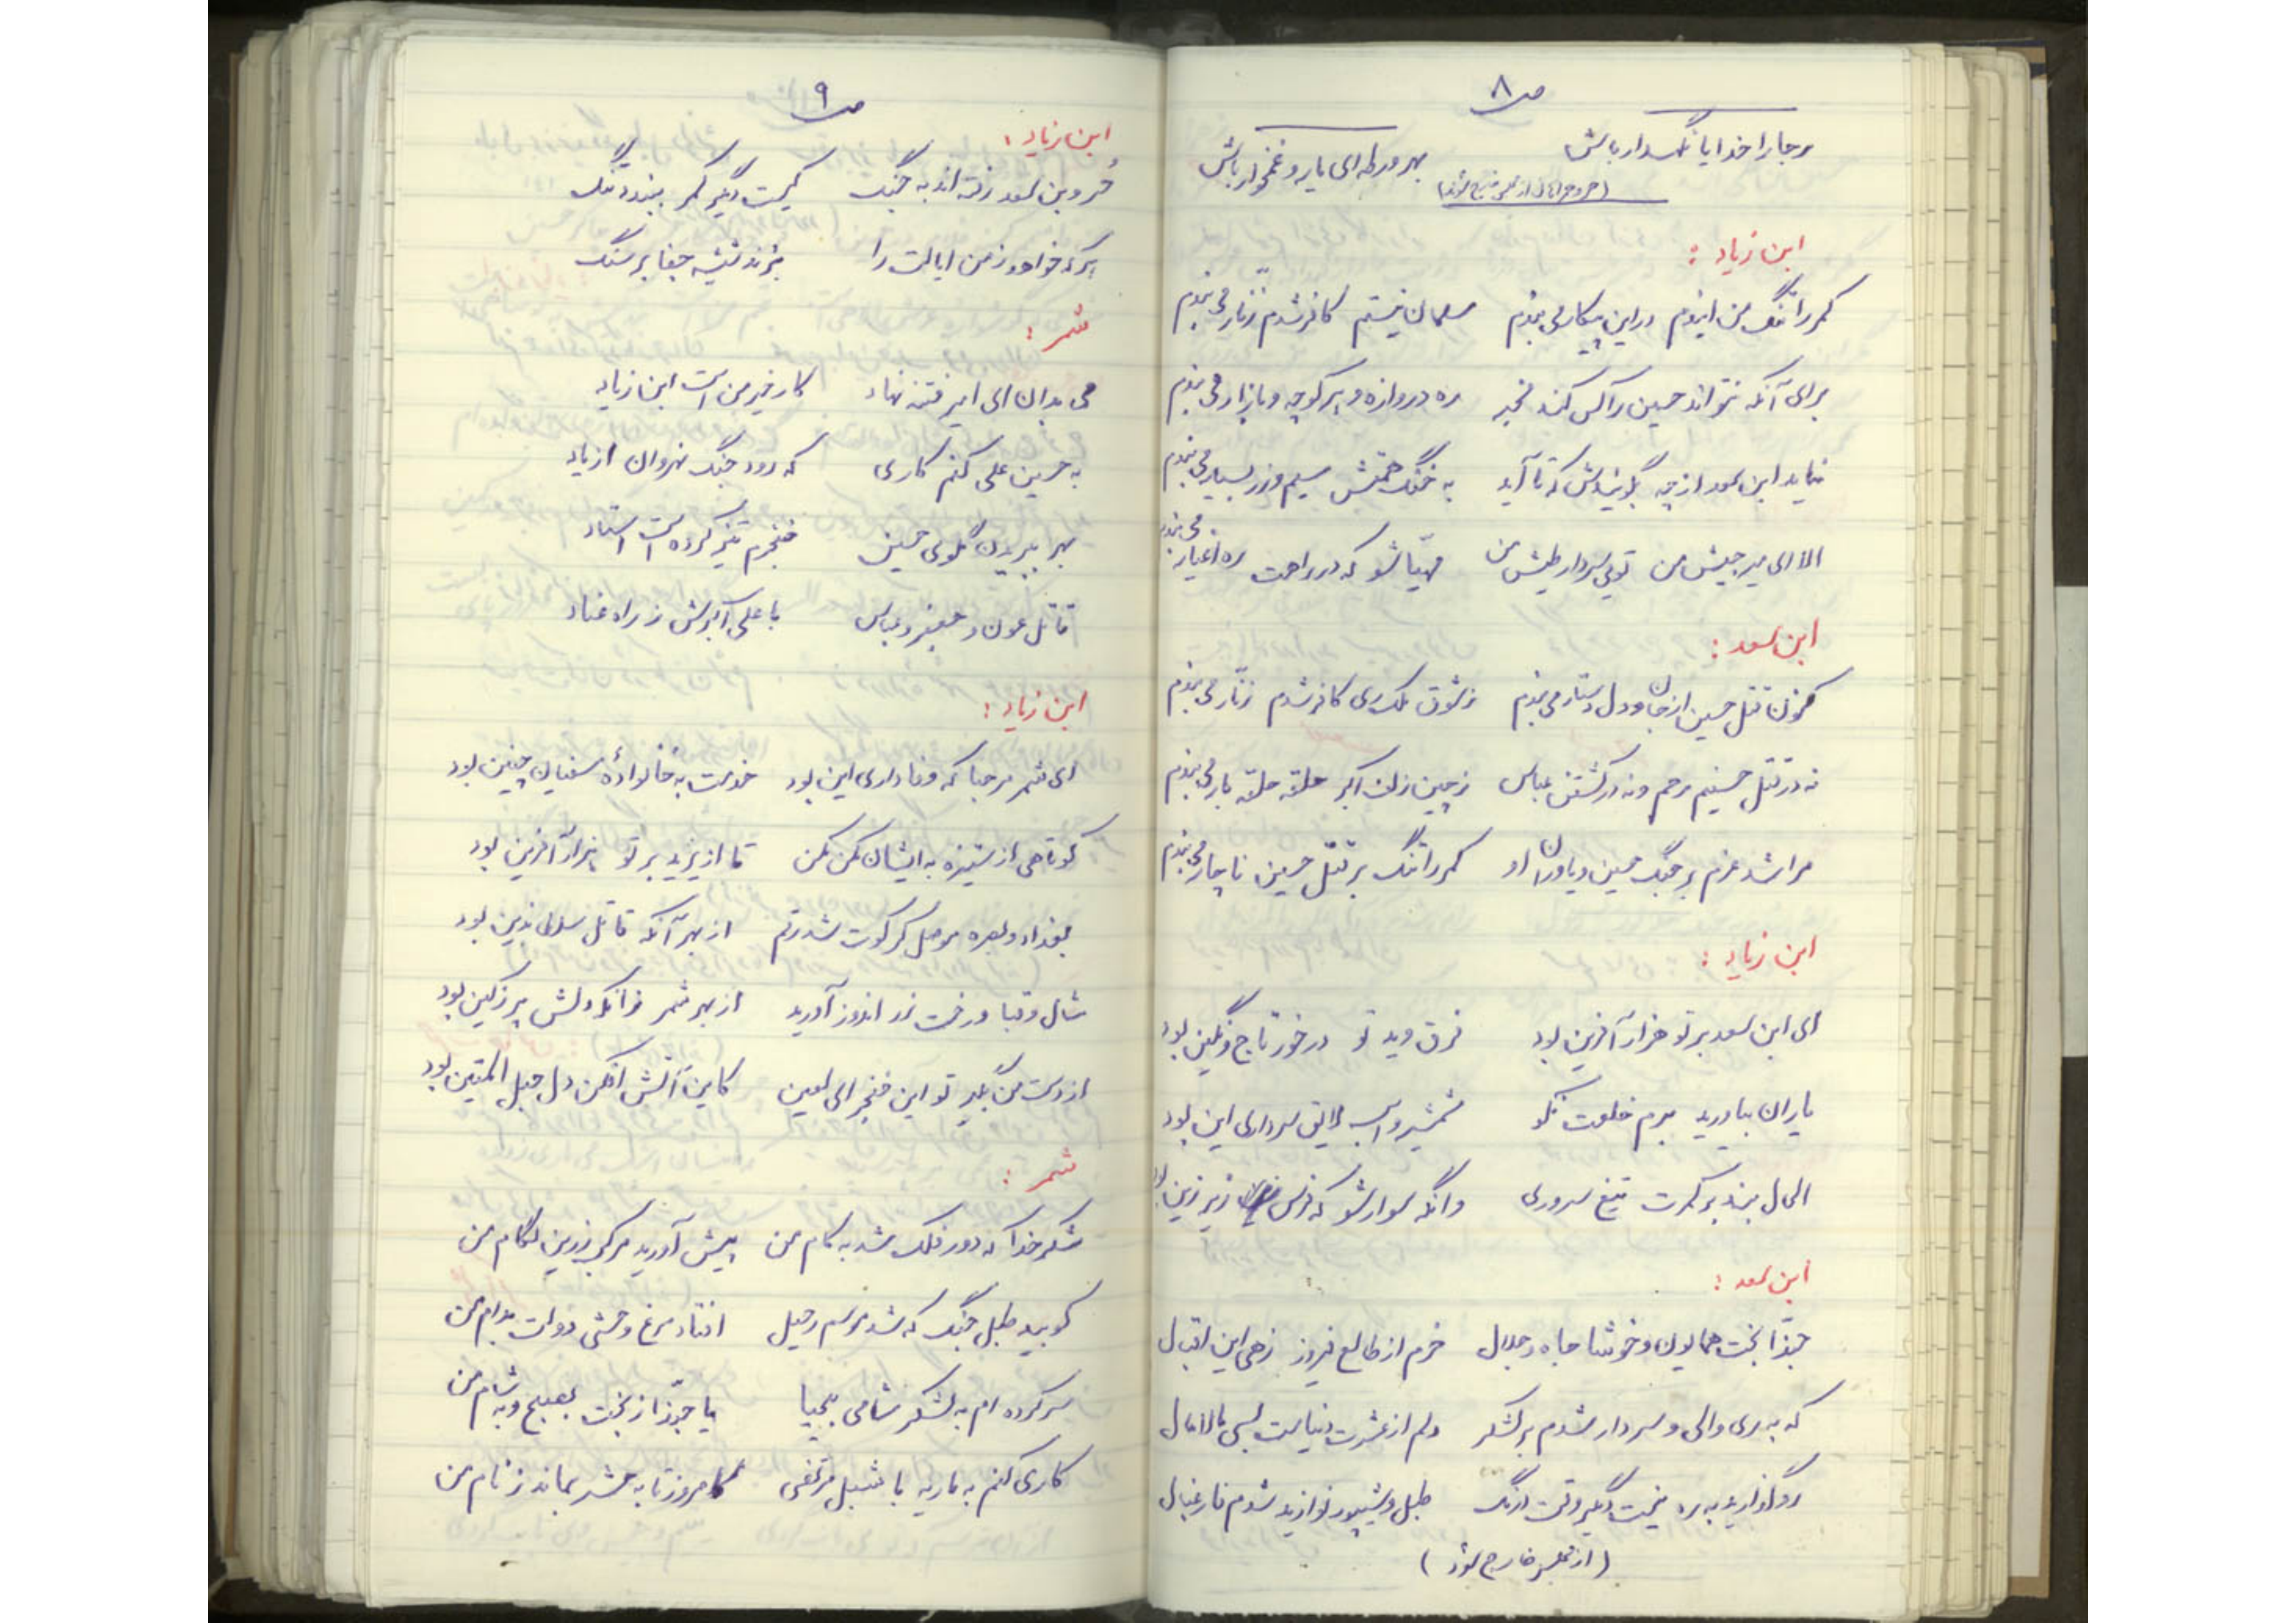 ص۸
هر جا را خدایا نگهدار باش بهر ورطه ای یار و غمخوار باش
ابن زیاد :
کمر را تنگ من ایندم در این پیکار می بندم مسلمان نیستم کافر شدم زنّار می بندم
برای آنکه نتواند حسین را کس کند مخبر ره دروازه و هر کوچه و بازار می بندم
نیامد ابن سعد از چه بگوئیدش که تا آید به همتش سیم و زر بسیار می بندم
الا ای میر جیش من توئی سردار من مهیّا شو که در راهت ره اغیار می بندم
ابن سعد :
کنون قتل حسین از جان و دل می بندم ز شوق ملک ری کافر شدم زنّار می بندم
نه در قتل حسینم رحم و نه در کشتن عباس ز چین زلف اکبر حلقه حلقه بار می بندم
مرا شد عزم بر جنگ حسین و یاوران او کمر را تنگ بر قتل حسین ناچار می بندم
ابن زیاد :
ای ابن سعد بر تو هزار آفرین بود فرق تو در خور تاج و نگین بود
یاران بیاورید برم خلعت نکو شمشیر و اسب لایق سرداری این بود
الحال ببند بر کمرت تیغ سروری وانگه سوار شو که فرس زیر زین
ابن سعد :
حبّذا بخت همایون و خوشا جاه و جلال خرم از طالع فیروز زهی این اقبال
که به ری والی و سردار شدم بر لشکر دلم از عشرت دنیاست بسی مالامال
رو گذارید به ره نیست دگر وقت درنگ طبل و شیپور نوازید شدم فارغبال
(از مجلس خارج شود)
ص۹
ابن زیاد :
حُر و بن سعد رفته اند به جنگ کیست دیگر کمر ببندد تنگ
هر که خواهد ز من ایالت را بزند تیشه جفا بر سنگ
شمر :
می بدان ای امیر فتنه نهاد کار خیر من است ابن زیاد
به حسین علی کنم کاری که رود جنگ نهروان از یاد
بهر ببریدن گلوی حسین خنجرم تیز کرده است استاد
قاتل عون و جعفر و عباس با علی اکبرش ز راه عناد
ابن زیاد :
ای شمر مرحبا که وفاداری این بود خدمت به خانوادهٔ سفیان چنین بود
کوتاهی از ستیزه به ایشان مکن مکن تا از یزید بر تو هزار آفرین بود
بغداد و بصره موصل کرکوت شد رقم از بهر آنکه قاتل سلطان دین بود
شال و قبا و رخت زر اندوز آورید از بهر شمر زانکه دلش پر ز کین بود
از دست من بگیر تو این خنجر ای لعین کاین آتش افکن دل حبل المتین بود
شمر :
شکر خدا که دور فلک شد به کام من پیش آورید مرکب زرین لگام من
کوبید طبل جنگ که شد موسم رحیل افتاد مرغ وحشی دولت بدام من
سر کرده ام به لشکر شامی بیحیا یا حبّذا ز بخت بصبح و به شام من
کاری کنم به ماریه با شبل مرتضی کامروز تا به حشر بماند ز نام من